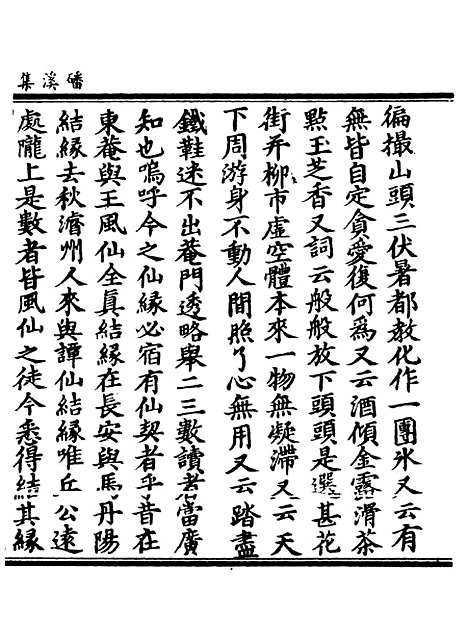 磻溪集
徧撮山頭三伏暑都教化作一團氷又云有
無皆自定貪愛復何爲又云酒傾金露滑茶
點玉芝香又詞云般般放下頭頭是選甚花
街幷柳市虛空體本來一物無凝滯又云天
下周游身不動人間照了心無用又云踏盡
鐵鞋迷不出菴門透略舉二三數讀者當廣
知也嗚呼今之仙緣必宿有仙契者乎昔在
東菴與王風仙全真結緣在長安與馬丹陽
結緣去秋濰州人來與譚仙結緣唯丘公遠
處隴上是數者皆風仙之徒今悉得結其緣